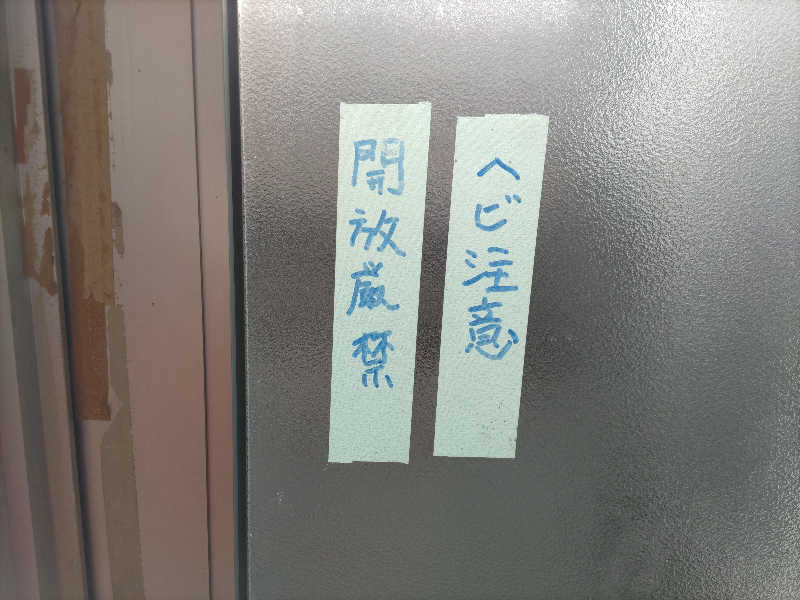 ヘビ注意
開放厳禁